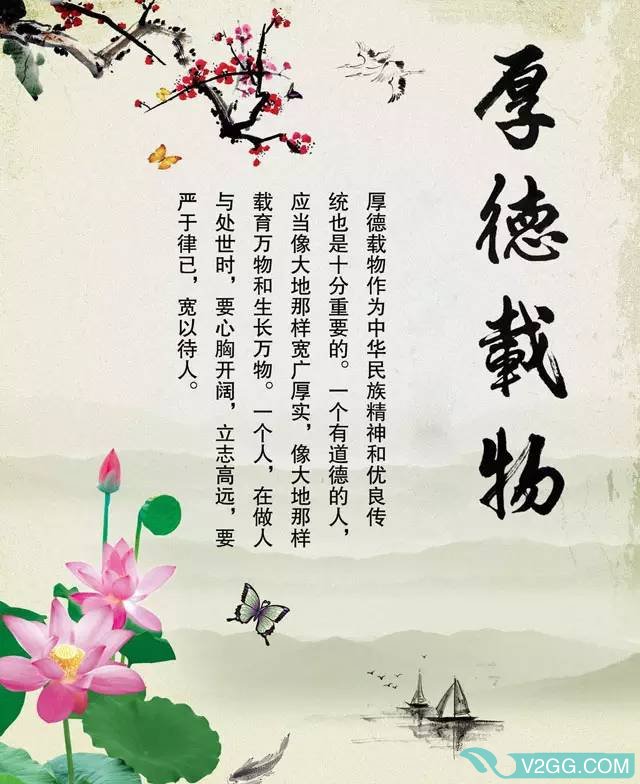 厚德載物
厚德载物作为中华民族精神和优良传
统也是十分重要的。一个有道德的人，
应当像大地那样宽广厚实，像大地那样
载育万物和生长万物。一个人，在做人
与处世时，要心胸开阔，立志高远，要
严于律已，宽以待人。
V2GG.COM